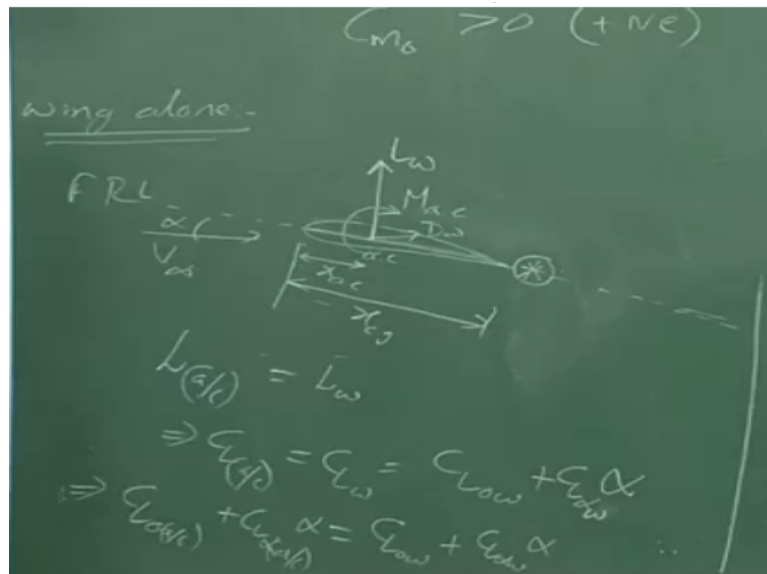 Cm₀ > 0 (+ve)
wing alone:-
FRL
Lω
Mac
α
Dω
V∞
a.c
xac
xcg
L(a/c) = Lω
⇒ CL(a/c) = CLω = CL0ω + CLαω α
⇒ CL0(a/c) + CLα(a/c) α = CL0ω + CLαω α